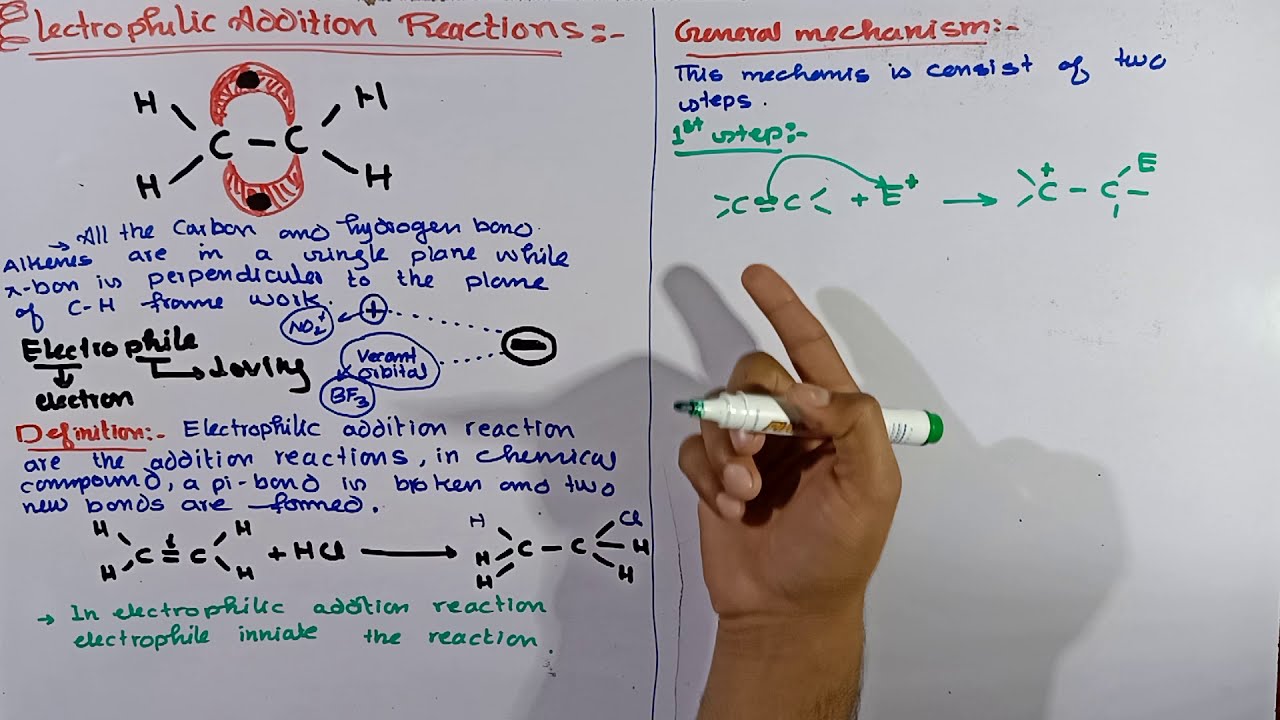 Electrophilic Addition Reactions:-
H H
C - C
H H
→ All the Carbon and hydrogen bond
Alkenes are in a single plane while
π-bon is perpendicular to the plane
of C-H frame work.
NO₂⁺ +
Electrophile → loving
Vecant orbital
−
electron
BF₃
Definition:- Electrophilic addition reaction
are the addition reactions, in chemical
compound, a pi-bond is broken and two
new bonds are formed.
H H H Cl
C = C + HCl → H C - C H
H H H H
→ In electrophilic addition reaction
electrophile inniate the reaction.
General mechanism:-
This mechamis is consist of two
steps.
1st step:-
C = C + E⁺ → C⁺ - C E